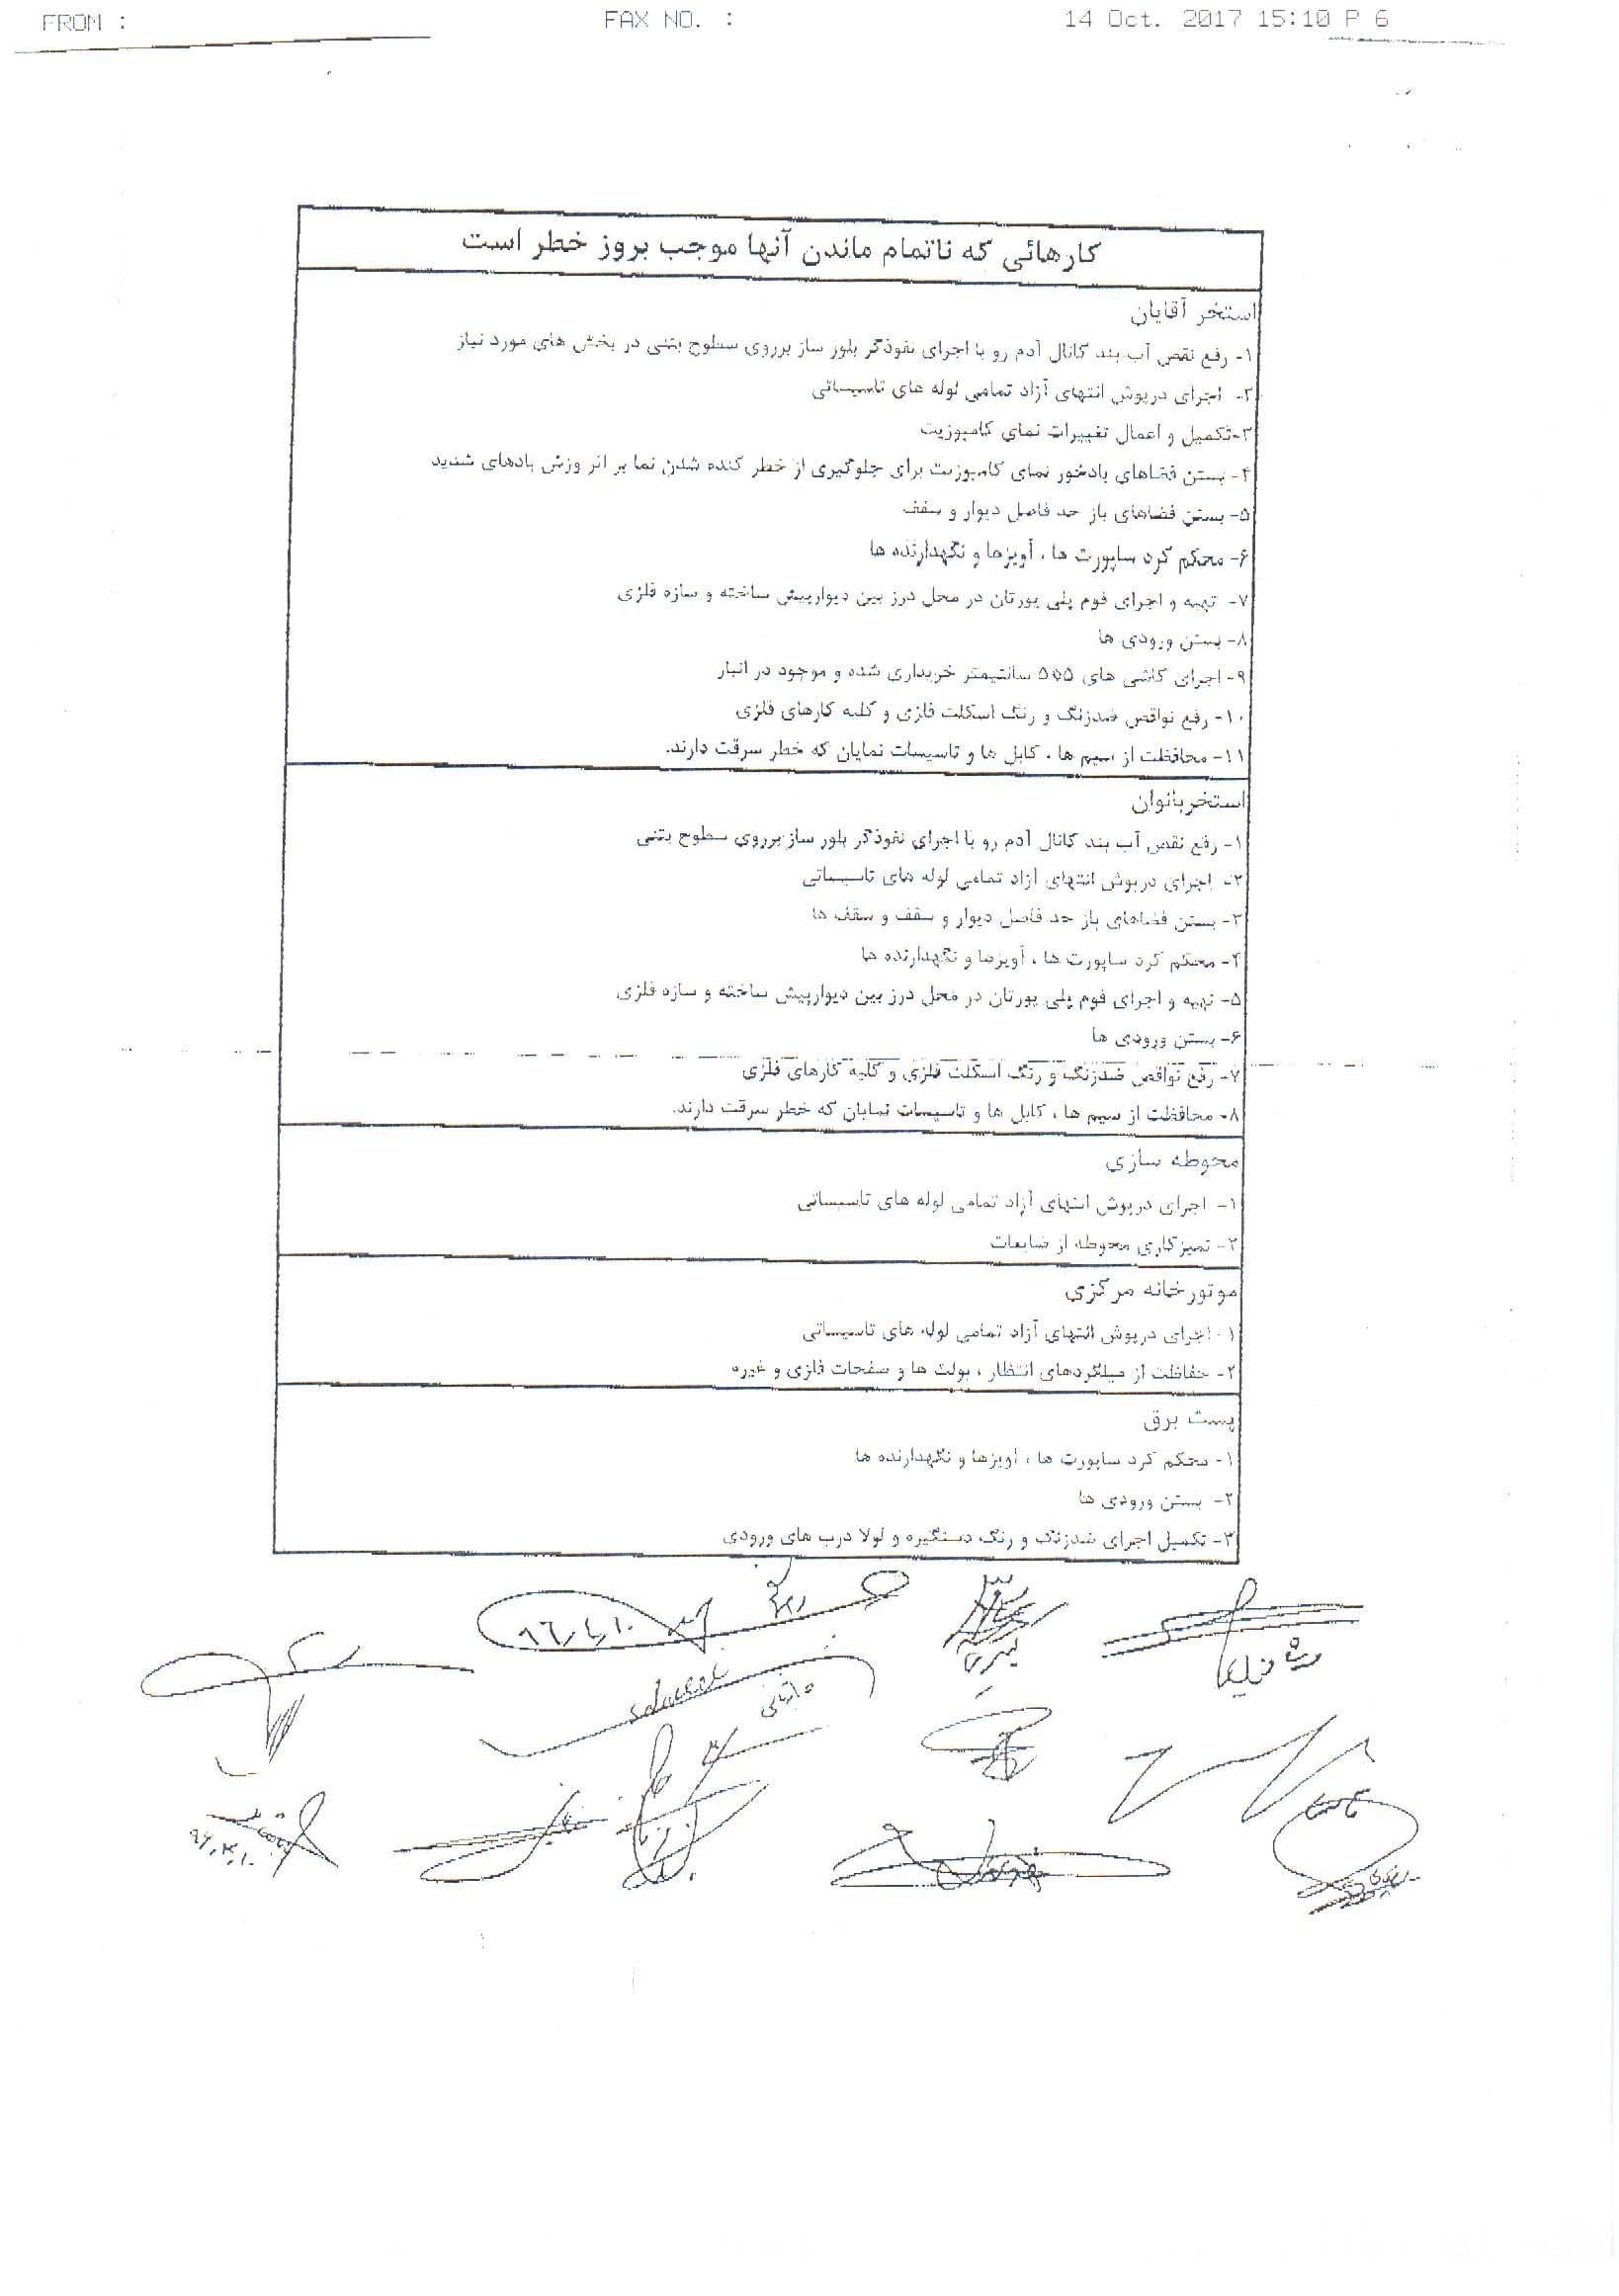 FROM :
FAX NO. :
14 Oct. 2017 15:10 P 6
کارهائی که ناتمام ماندن آنها موجب بروز خطر است
استخر آقایان
۱- رفع نقص آب بند کانال آدم رو با اجرای نفوذگر بلور ساز برروی سطوح بتنی در بخش های مورد نیاز
۲- اجرای درپوش انتهای آزاد تمامی لوله های تاسیساتی
۳-تکمیل و اعمال تغییرات نمای کامپوزیت
۴- بستن فضاهای بادخور نمای کامپوزیت برای جلوگیری از خطر کنده شدن نما بر اثر وزش بادهای شدید
۵- بستن فضاهای باز حد فاصل دیوار و سقف
۶- محکم کرد ساپورت ها ، آویزها و نگهدارنده ها
۷- تهیه و اجرای فوم پلی یورتان در محل درز بین دیوارپیش ساخته و سازه فلزی
۸- بستن ورودی ها
۹- اجرای کاشی های ۵*۵ سانتیمتر خریداری شده و موجود در انبار
۱۰- رفع نواقص ضدزنگ و رنگ اسکلت فلزی و کلیه کارهای فلزی
۱۱- محافظت از سیم ها ، کابل ها و تاسیسات نمایان که خطر سرقت دارند.
استخربانوان
۱- رفع نقص آب بند کانال آدم رو با اجرای نفوذگر بلور ساز برروی سطوح بتنی
۲- اجرای درپوش انتهای آزاد تمامی لوله های تاسیساتی
۳- بستن فضاهای باز حد فاصل دیوار و سقف و سقف ها
۴- محکم کرد ساپورت ها ، آویزها و نگهدارنده ها
۵- تهیه و اجرای فوم پلی یورتان در محل درز بین دیوارپیش ساخته و سازه فلزی
۶- بستن ورودی ها
۷- رفع نواقص ضدزنگ و رنگ اسکلت فلزی و کلیه کارهای فلزی
۸- محافظت از سیم ها ، کابل ها و تاسیسات نمایان که خطر سرقت دارند.
محوطه سازی
۱- اجرای درپوش انتهای آزاد تمامی لوله های تاسیساتی
۲- تمیزکاری محوطه از ضایعات
موتورخانه مرکزی
۱- اجرای درپوش انتهای آزاد تمامی لوله های تاسیساتی
۲- حفاظت از میلگردهای انتظار ، بولت ها و صفحات فلزی و غیره
پست برق
۱- محکم کرد ساپورت ها ، آویزها و نگهدارنده ها
۲- بستن ورودی ها
۳- تکمیل اجرای ضدزنگ و رنگ دستگیره و لولا درب های ورودی